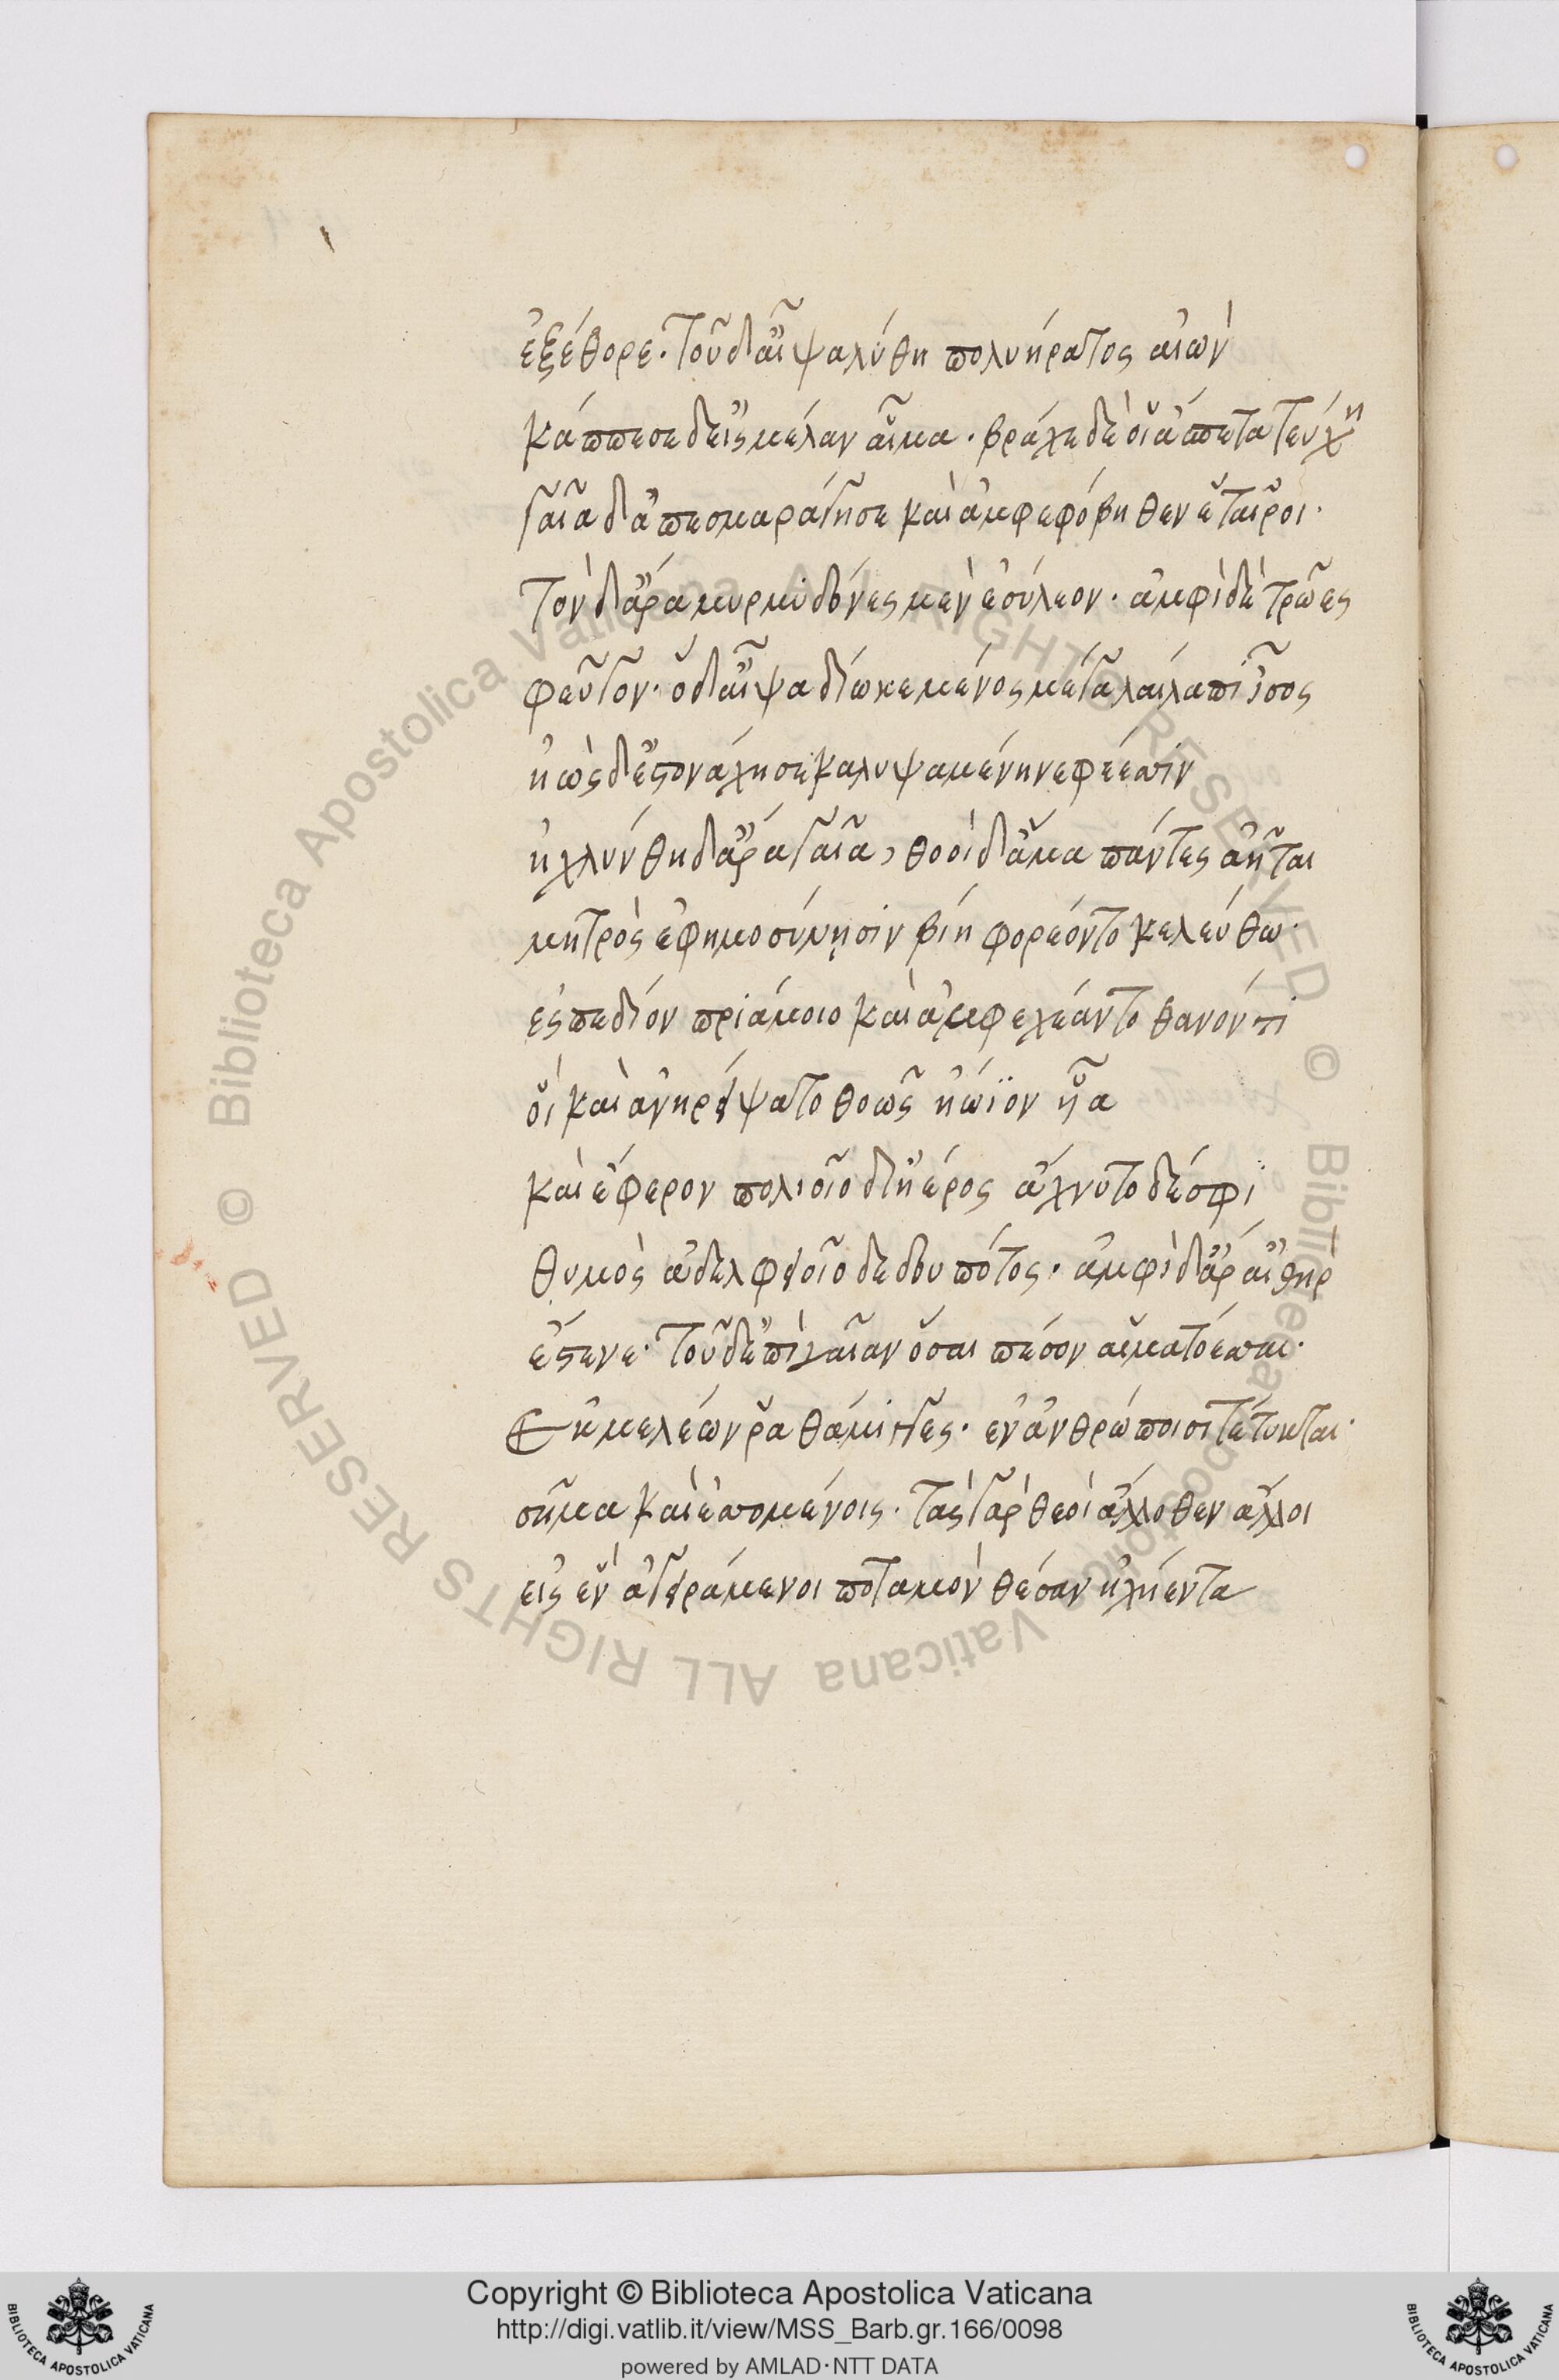 ἐξέθορε· τοῦ δ' αἶψα λύθη πολυήρατος αἰών
κάππεσε δ' εἰς μέλαν αἷμα· βράχε δέ οἱ ἄσπετα τεύχη
γαῖα δ' ἀπεσμαράγησε καὶ ἀμφεφόβηθεν ἑταῖροι·
τὸν δ' ἄρα μυρμιδόνες μὲν ἐσύλεον· ἀμφὶ δὲ τρῶες
φεῦγον· ὁ δ' αἶψα δίωκε μένος μέγα λαίλαπι ἶσος
ἠὼς δ' ἐστονάχησε καλυψαμένη νεφέεσσιν
ἠχλύνθη δ' ἄρα γαῖα, θοοὶ δ' ἅμα πάντες ἀῆται
μητρὸς ἐφημοσύνῃσιν βίῃ φορέοντο κελεύθω·
ἐς πεδίον πριάμοιο καὶ ἀμφεχέαντο θανόντι
οἳ καὶ ἀνηρείψατο θοῶς ἠώϊον ἧα
καὶ ἔφερον πολιοῖο δι' ἠέρος ἄχνυτο δέ σφι
θυμὸς ἀδελφειοῖο δεδουπότος· ἀμφὶ δ' ἄρ' αἰθὴρ
ἔστενε· τοῦ δ' ἐπὶ γαῖαν ὅσαι πέσον αἱματόεσσαι·
Ἐκ μελέων ῥαθάμιγγες· ἐν ἀνθρώποισι τέτυκται·
σῆμα καὶ ἐσσομένοις· τὰς γὰρ θεοὶ ἄλλοθεν ἄλλοι
εἰς ἓν ἀγειράμενοι ποταμὸν θέσαν ἠχήεντα
Copyright © Biblioteca Apostolica Vaticana
http://digi.vatlib.it/view/MSS_Barb.gr.166/0098
powered by AMLAD·NTT DATA
BIBLIOTECA APOSTOLICA VATICANA
BIBLIOTECA APOSTOLICA VATICANA
© Biblioteca Apostolica Vaticana ALL RIGHTS RESERVED
© Biblioteca Apostolica Vaticana ALL RIGHTS RESERVED